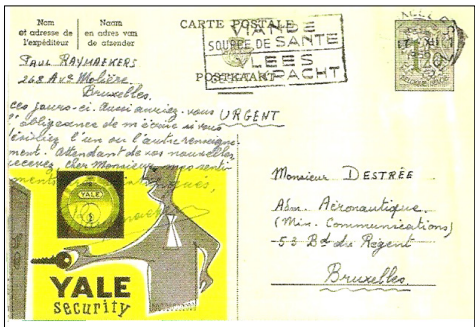 Nom
et adresse de
l'expéditeur
Naam
en adres van
de afzender
CARTE POSTALE
POSTKAART
VIANDE
SOURCE DE SANTE
VLEES
PACHT
1,20
PAUL RAYMAEKERS
268 Ave Molière
Bruxelles.
ces jours-ci. Aussi auriez-vous
l'obligeance de m'écrire si vous
l'un ou l'autre renseigne-
ment. Attendant de vos nouvelles
recevez, cher Monsieur, mes senti-
ments
URGENT
Monsieur DESTRÉE
Adm. Aéronautique.
(Min. Communications)
53 Bd du Régent
Bruxelles.
YALE
YALE
security